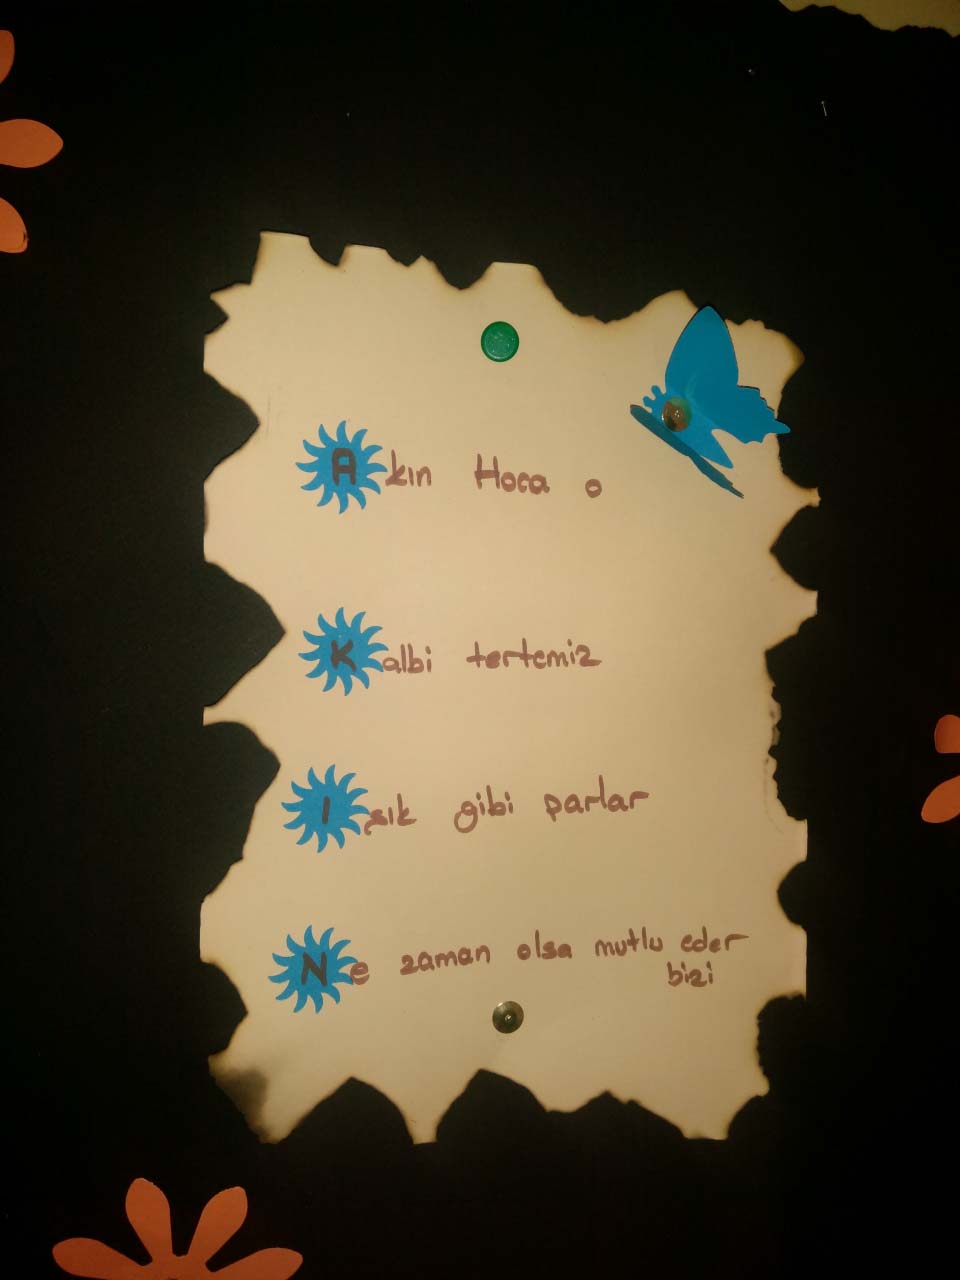 Akın Hoca o
Kalbi tertemiz
Işık gibi parlar
Ne zaman olsa mutlu eder
bizi